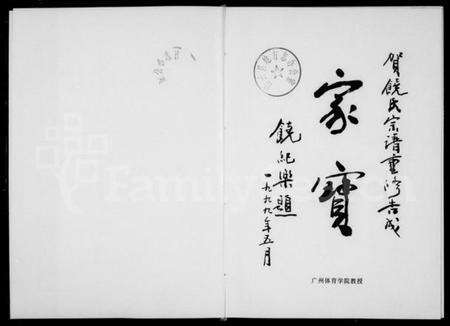 贺饶氏宗谱重修告成
家寶
饶纪樂題
一九九九年五月
广州体育学院教授